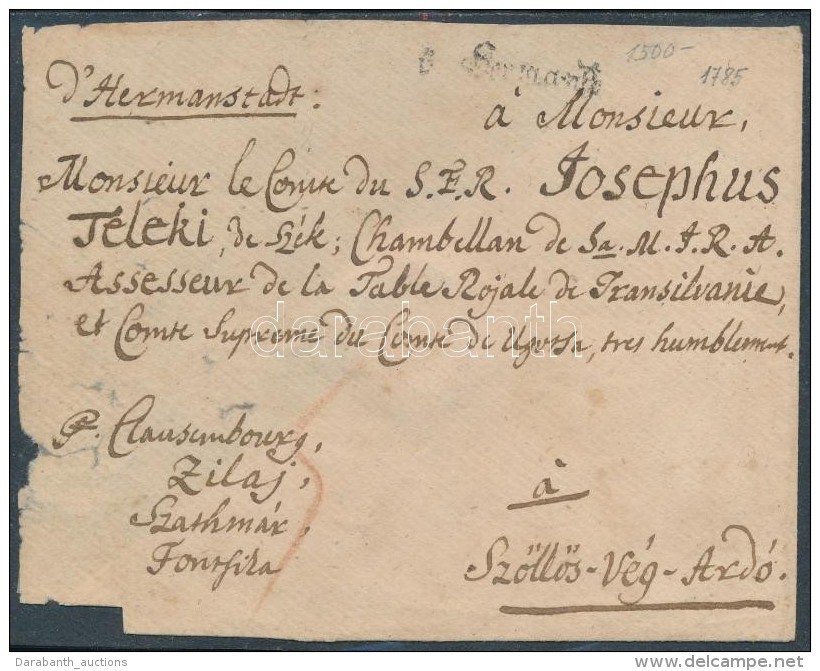 v. Hermanst
1500-
1785
d'Hermanstadt:
à Monsieur,
Monsieur le Comte du S.E.R. Josephus
Teleki, de Szék; Chambellan de Sa. M. J. R. A.
Assesseur de la Table Rojale de Transilvanie,
et Comte Supreme du Comte de Ugotsa, tres humblement.
darabanth
P. Clausembourg,
Zilaj,
Szathmár,
à
Szőllős-Vég-Ardó.
Darabanth_auctions
delcampe.net